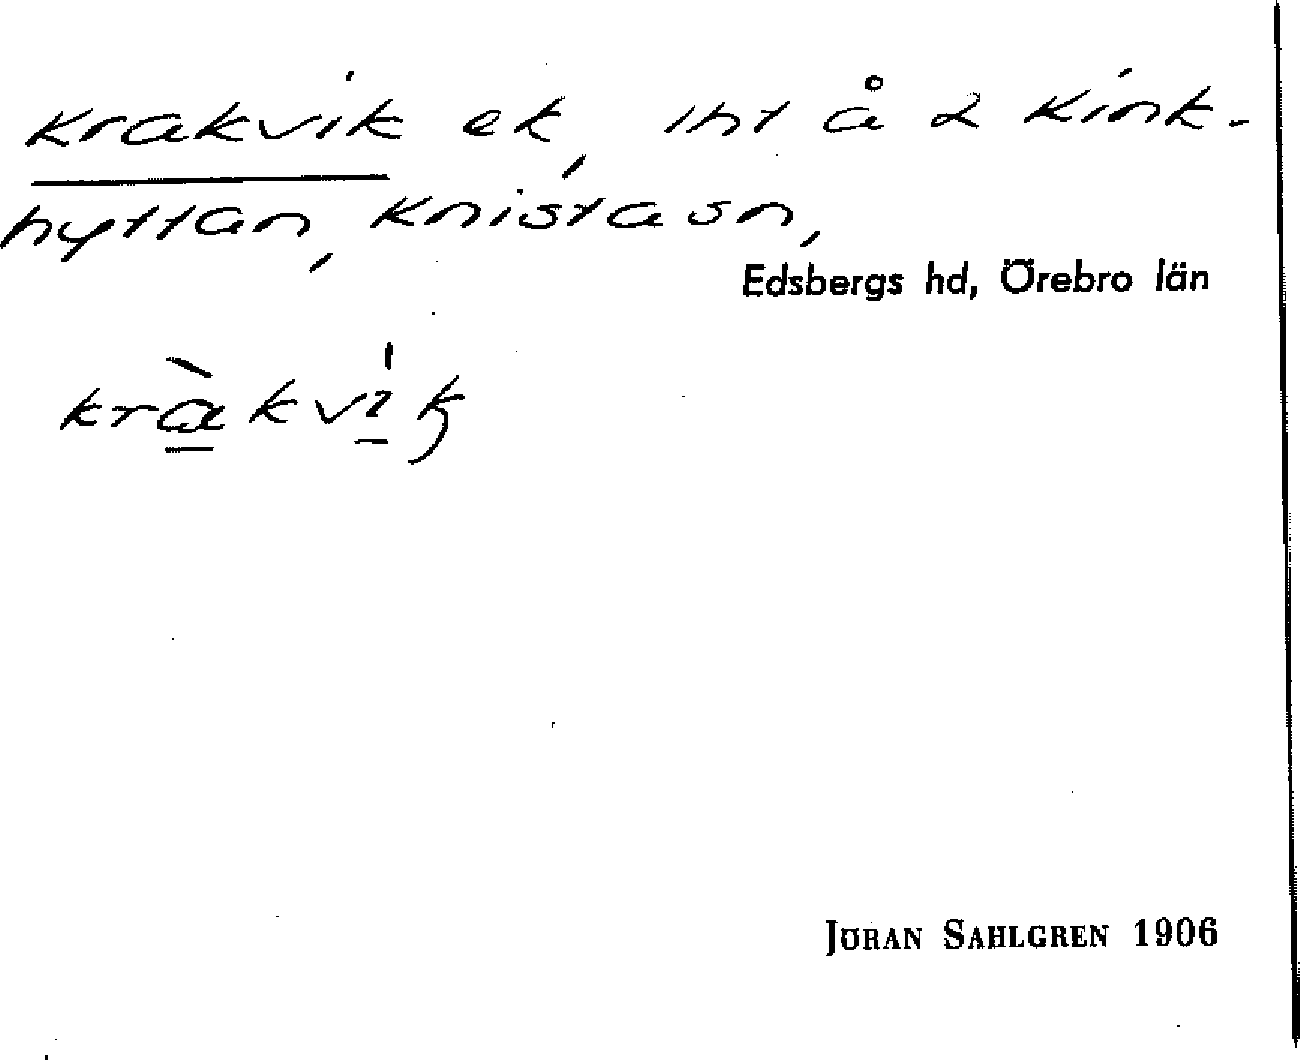 Krakvik ek, iht å 2 Kink-
hyttan, Knista sn,
Edsbergs hd, Örebro län
kràkvik
JÖRAN SAHLGREN 1906